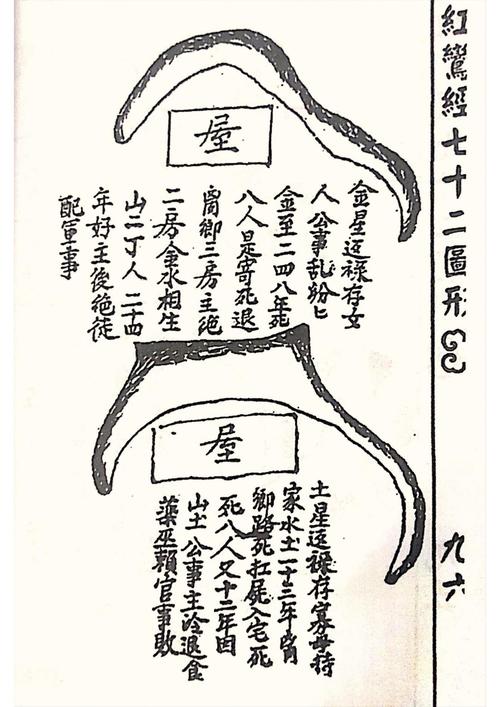 紅鸞經七十二圖形
九六
屋
金星逗祿存女
人公事乱紛〻
金至二四八年死
八人是寄死退
啇鄉三房主絕
二房金水相生
山二丁人二十四
年好主後絕徒
配軍事
屋
土星逗祿存寡母持
家水土一十三年
鄉路死扛屍入宅死
死八人又十二年因
山土公事主冷退食
藥巫賴官事敗